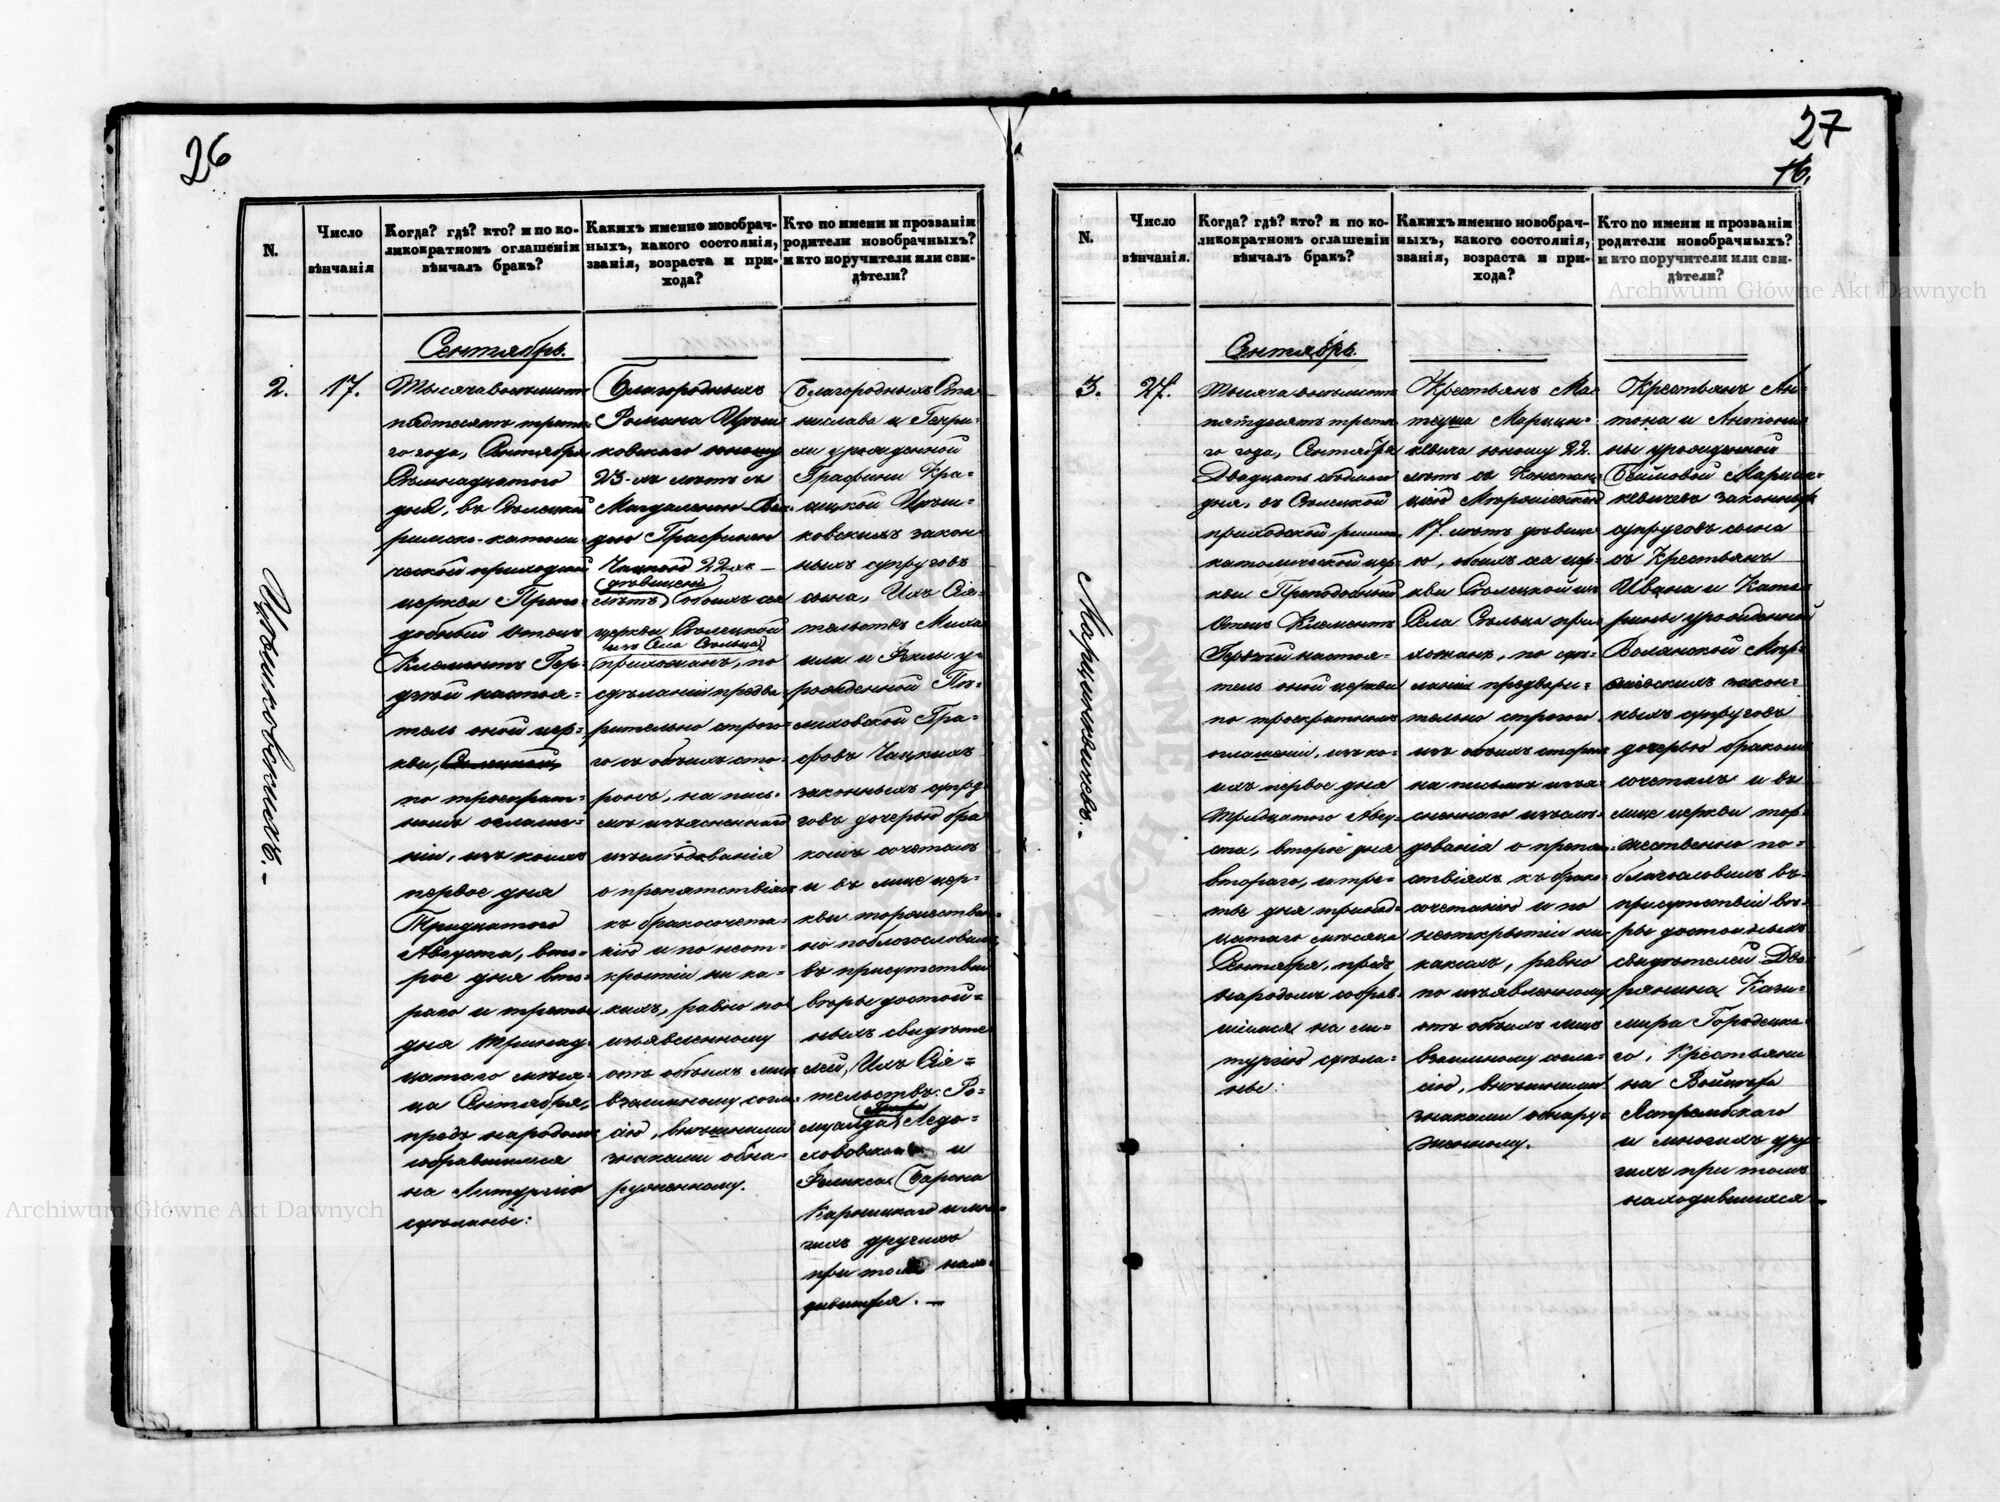 26
N.
Число
вѣнчанія
Когда? гдѣ? кто? и по ко-
ликократномъ оглашеніи
вѣнчалъ бракъ?
Какихъ именно новобрач-
ныхъ, какого состоянія,
званія, возраста и при-
хода?
Кто по имени и прозванію
родители новобрачныхъ?
и кто поручители или сви-
дѣтели?
Сентябрь.
2.
17.
Тысяча восемьсотъ
пятдесятъ треть-
го года, Сентября
Семнадцатого
дня, въ
римско-католи
ческой приходской
церкви Препо-
добный Отецъ
Климентъ
настоя=
тель оной цер=
кви,
по троекрат=
номъ оглаше=
ніи, изъ коихъ
первое дня
Тридцатого
Августа, вто-
рое дня вто-
раго и третье
дня тринад-
цатого меѣся-
ца Сентября,
предъ народомъ
собравшимся
на Литургію
сдѣланы:
Благородныхъ
Романа
ковского юношу
23-хъ лѣтъ съ
Магдаленою
Графинею
Чацкою 22хъ
дѣвицею
лѣтъ, обоихъ сея
церкви
изъ Села
прихожанъ, по
сдѣланіи предва-
рительно строго-
го съ обѣихъ сто-
ронъ, на пись-
мѣ изъясненного
изслѣдованія
о препятствіяхъ
къ бракосочета-
нію и по неот-
крытіи ни ка-
кихъ, равно по
изъявленному
отъ обѣихъ лицъ
взаимному согла-
сію, внѣшними
знаками обна-
руженному.
Благородныхъ Ста-
нислава и Генри-
ки урожденной
Графини Кра-
сицкой
ковскихъ закон-
ныхъ супруговъ
сына, Ихъ Сія-
тельствъ Миха-
ила и Феклы у-
рожденной
Гра-
фовъ Чацкихъ
законныхъ супру-
говъ дочерью бра
комъ сочеталъ
и въ лице цер-
кви торжествен-
но поблагословилъ
въ присутствіи
вѣры достой=
ныхъ свидѣте
лей, Ихъ Сія=
тельствъ: Ро-
муалда Ледо-
ховского и
Феликса Барона
и мно-
гихъ другихъ
при томъ нахо-
дившихся. —
27
16.
N.
Число
вѣнчанія.
Когда? гдѣ? кто? и по ко-
ликократномъ оглашеніи
вѣнчалъ бракъ?
Какихъ именно новобрач-
ныхъ, какого состоянія,
званія, возраста и при-
хода?
Кто по имени и прозванію
родители новобрачныхъ?
и кто поручители или сви-
дѣтели?
Сентябрь.
3.
27.
Тысяча восемьсотъ
пятдесятъ треть
го года, Сентября
Двадцать седьмого
дня, въ
приходской римско
католической цер-
кви Преподобный
Отецъ Климентъ
настоя-
тель оной церкви
по троекратномъ
оглашеніи, изъ ко-
ихъ первое дня
тридцатого Авгу-
ста, второе дня
втораго, и тре-
тье дня тринад-
цатаго мѣсяца
Сентября, предъ
народомъ собрав-
шимся на ли-
тургію сдѣла-
ны:
Крестьянъ Ма-
теуша Марцин-
кевича юношу 22.
лѣтъ съ Констан-
ціею
17. лѣтъ дѣвице-
ю, обоихъ сея цер-
кви изъ
Села при-
хожанъ, по сдѣ-
ланіи предвари-
тельно строгого
изъ обѣихъ сторонъ
на письмѣ изъя-
сненного изслѣ-
дованія о препят-
ствіяхъ къ брако-
сочетанію и по
неоткрытіи ни-
какихъ, равно
по изъявленному
отъ обѣихъ лицъ
взаимному согла-
сію, внѣшними
знаками обнару-
женному.
Крестьянъ Ан-
тона и Антони-
ны урожденной
Марцин-
кевичевъ законныхъ
супруговъ сына
съ Крестьянъ
Ивана и Кате-
рины урожденной
Волянской
закон-
ныхъ супруговъ
дочерью бракомъ
сочеталъ и въ
лице церкви тор-
жественно по-
благословилъ въ
присутствіи вѣ-
ры достойныхъ
свидѣтелей Дво-
рянина Кази-
мира Городецка-
го, Крестьяни
на Войцѣха
и многихъ дру-
гихъ при томъ
находившихся —
Марцинкевичевъ. –
Archiwum Główne Akt Dawnych
Archiwum Główne Akt Dawnych